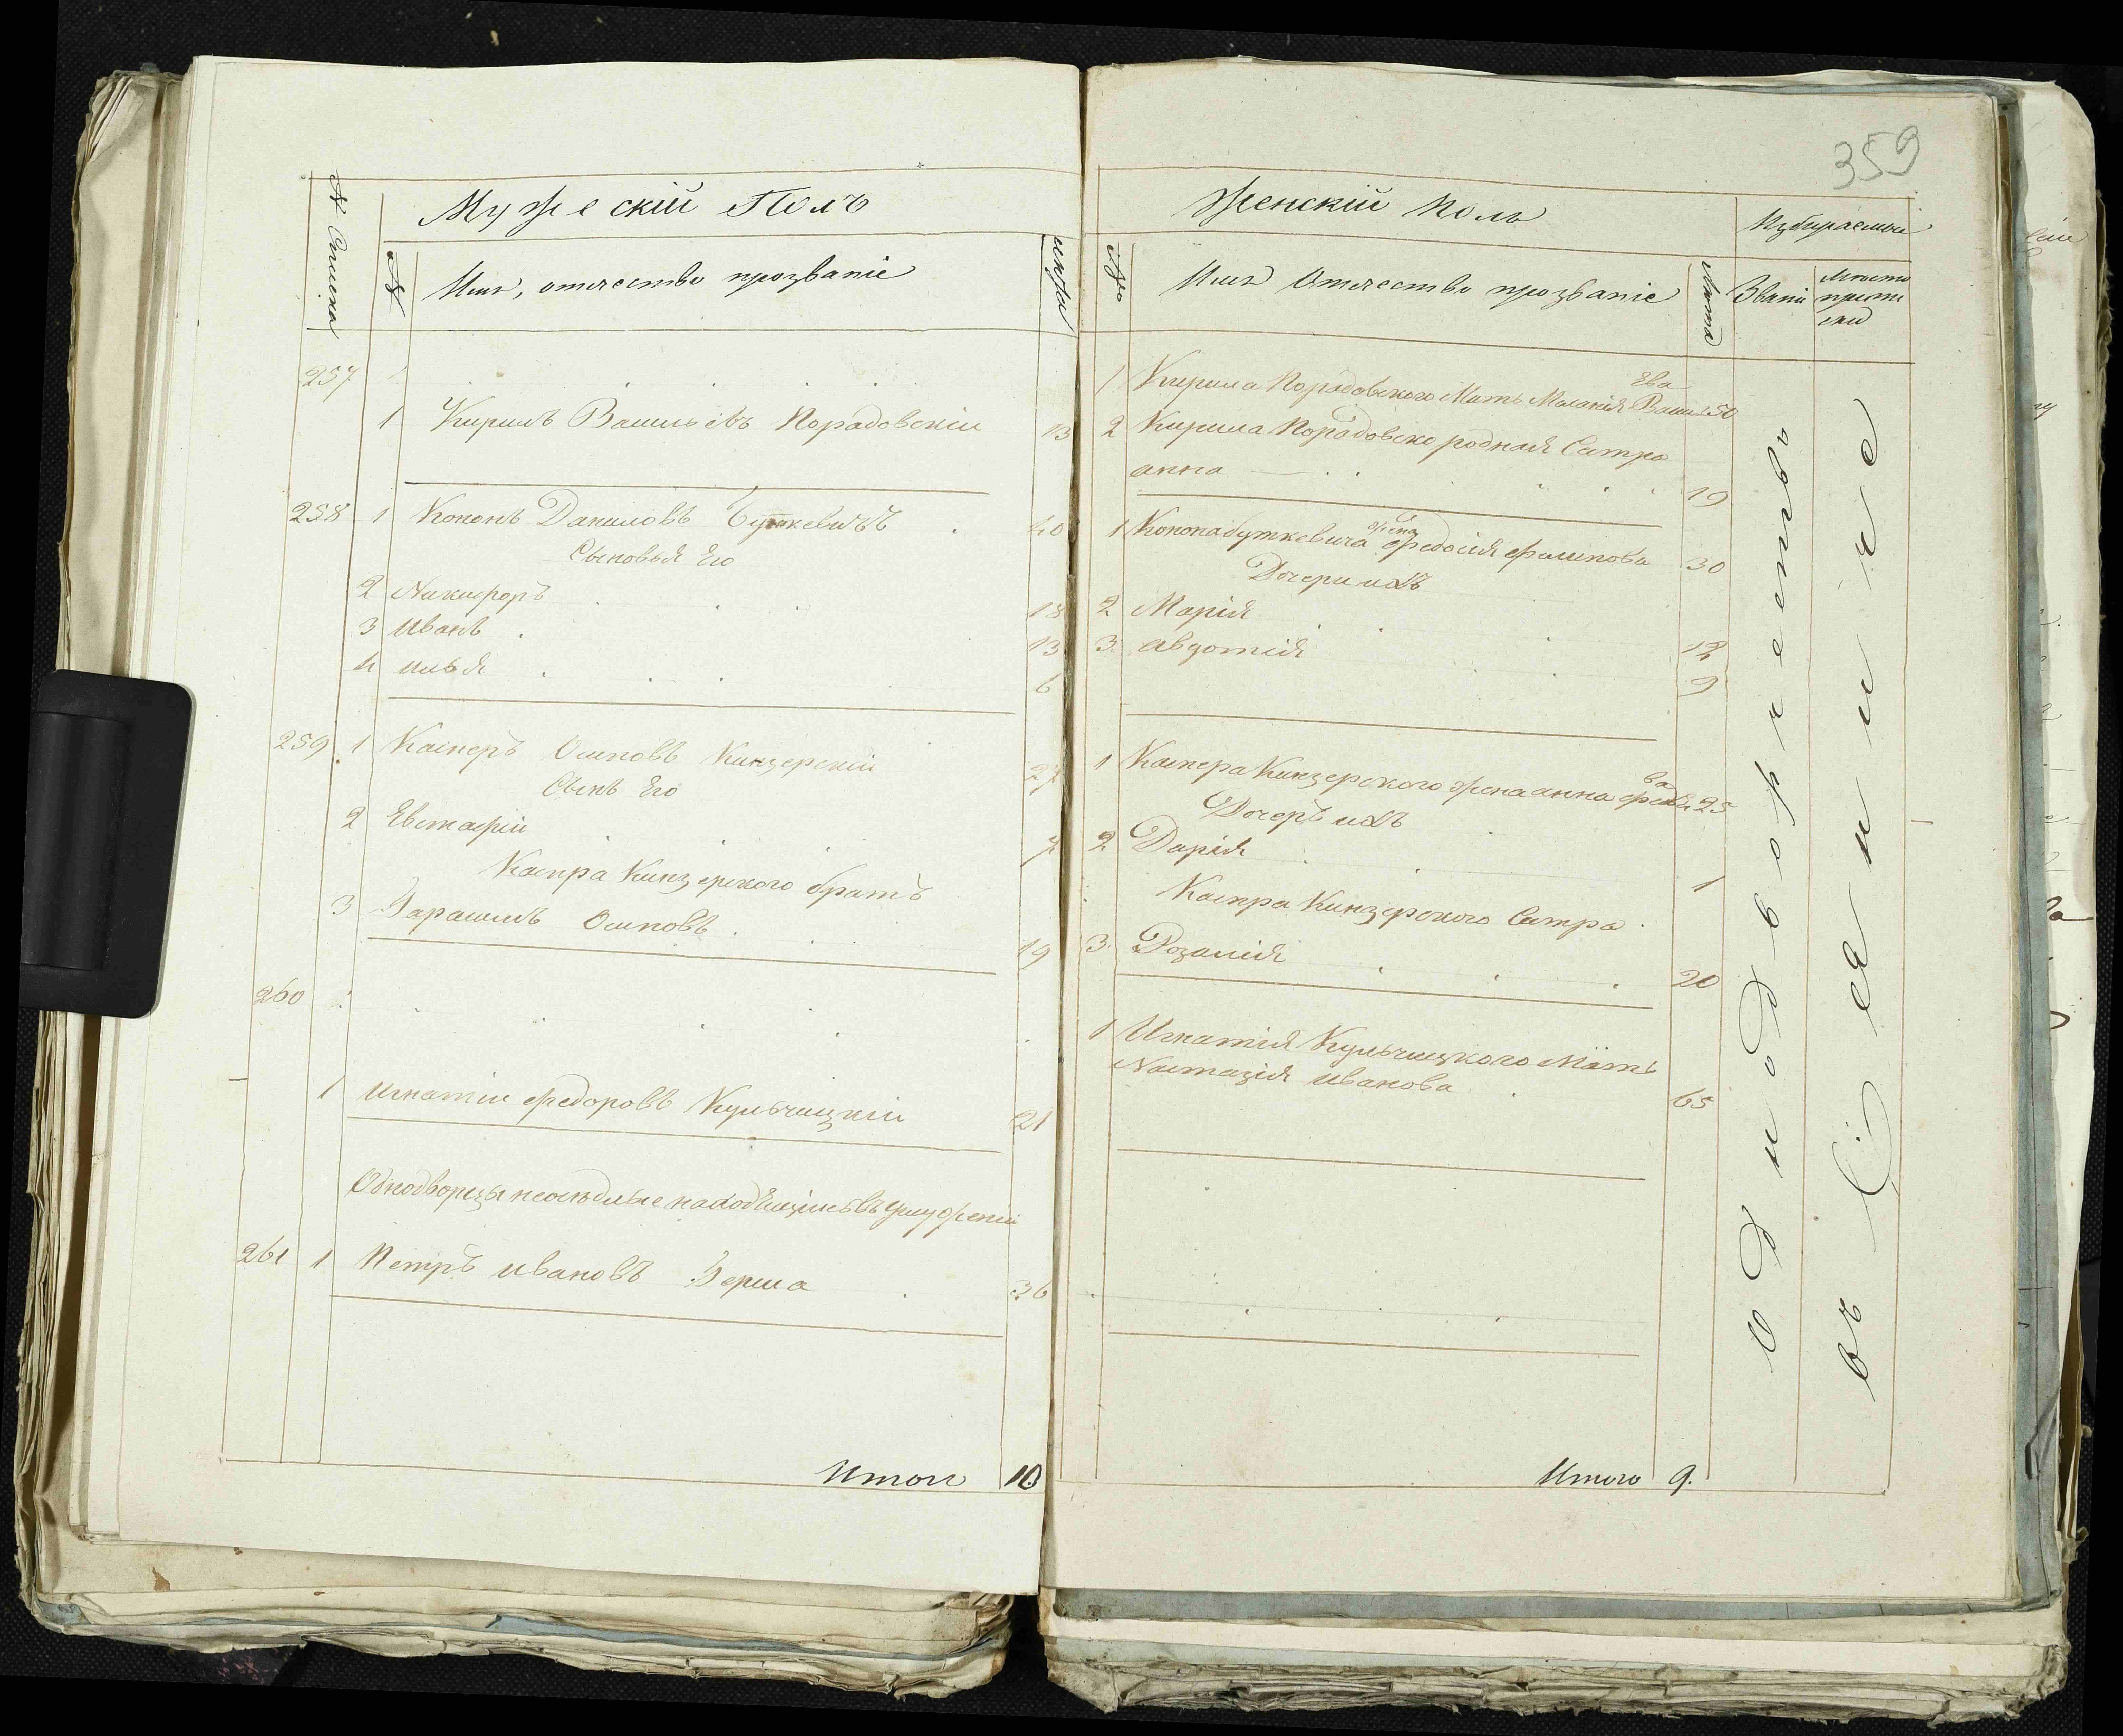 359
№ Списка
Мужескій Полъ
№
Имя, отчество прозваніе
лѣта
257
1 Кирилъ Васильевъ Порадовскій 13
258 1 Кононъ Даниловъ Буткевичъ 40
Сыновья Его
2 Никифоръ 18
3 Иванъ 13
4 илья 6
259 1 Касперъ Осиповъ Кинзерскій 27
Сынъ Его
2 Евстафій 7
Каспра Кинзерского братъ
3 Гарасимъ Осиповъ 19
260
1 игнатій Федоровъ Кульчицкій 21
Однодворцы неосѣдлые находящіесь въ
261 1 Петръ ивановъ Герша 36
Итого 10
Женскій полъ
Избираемый
Имя Отчество прозваніе
Лѣта
Званіе
Мѣсто
припи
ски
1 Кирила Порадовского Мать Маланія Васильева 50
2 Кирила Порадовско родная Сестра
анна 19
1 Конона буткевича жена федосія филипова 30
Дочери ихъ
2 Марія 12
3 авдотія 9
1 Каспера Кинзерского жена анна 25
Дочерь ихъ
2 Дарія 1
Каспра Кинзерского Сестра
3 Розалія 20
1 Игнатія Кульчицкого Мать
Настазія иванова 65
Итого 9.
однодворчество
въ Селеніи